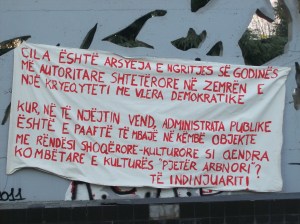 CILA ËSHTË ARSYEJA E NGRITJES SË GODINËS
MË AUTORITARE SHTETËRORE NË ZEMRËN E
NJË KRYEQYTETI ME VLERA DEMOKRATIKE
KUR, NË TË NJËJTIN VEND, ADMINISTRATA PUBLIKE
ËSHTË E PAAFTË TË MBAJË NË KËMBË OBJEKTE
ME RËNDËSI SHOQËRORE-KULTURORE SI QENDRA
KOMBËTARE E KULTURËS "PJETËR ARBNORI"?
TË INDINJUARIT!
2011